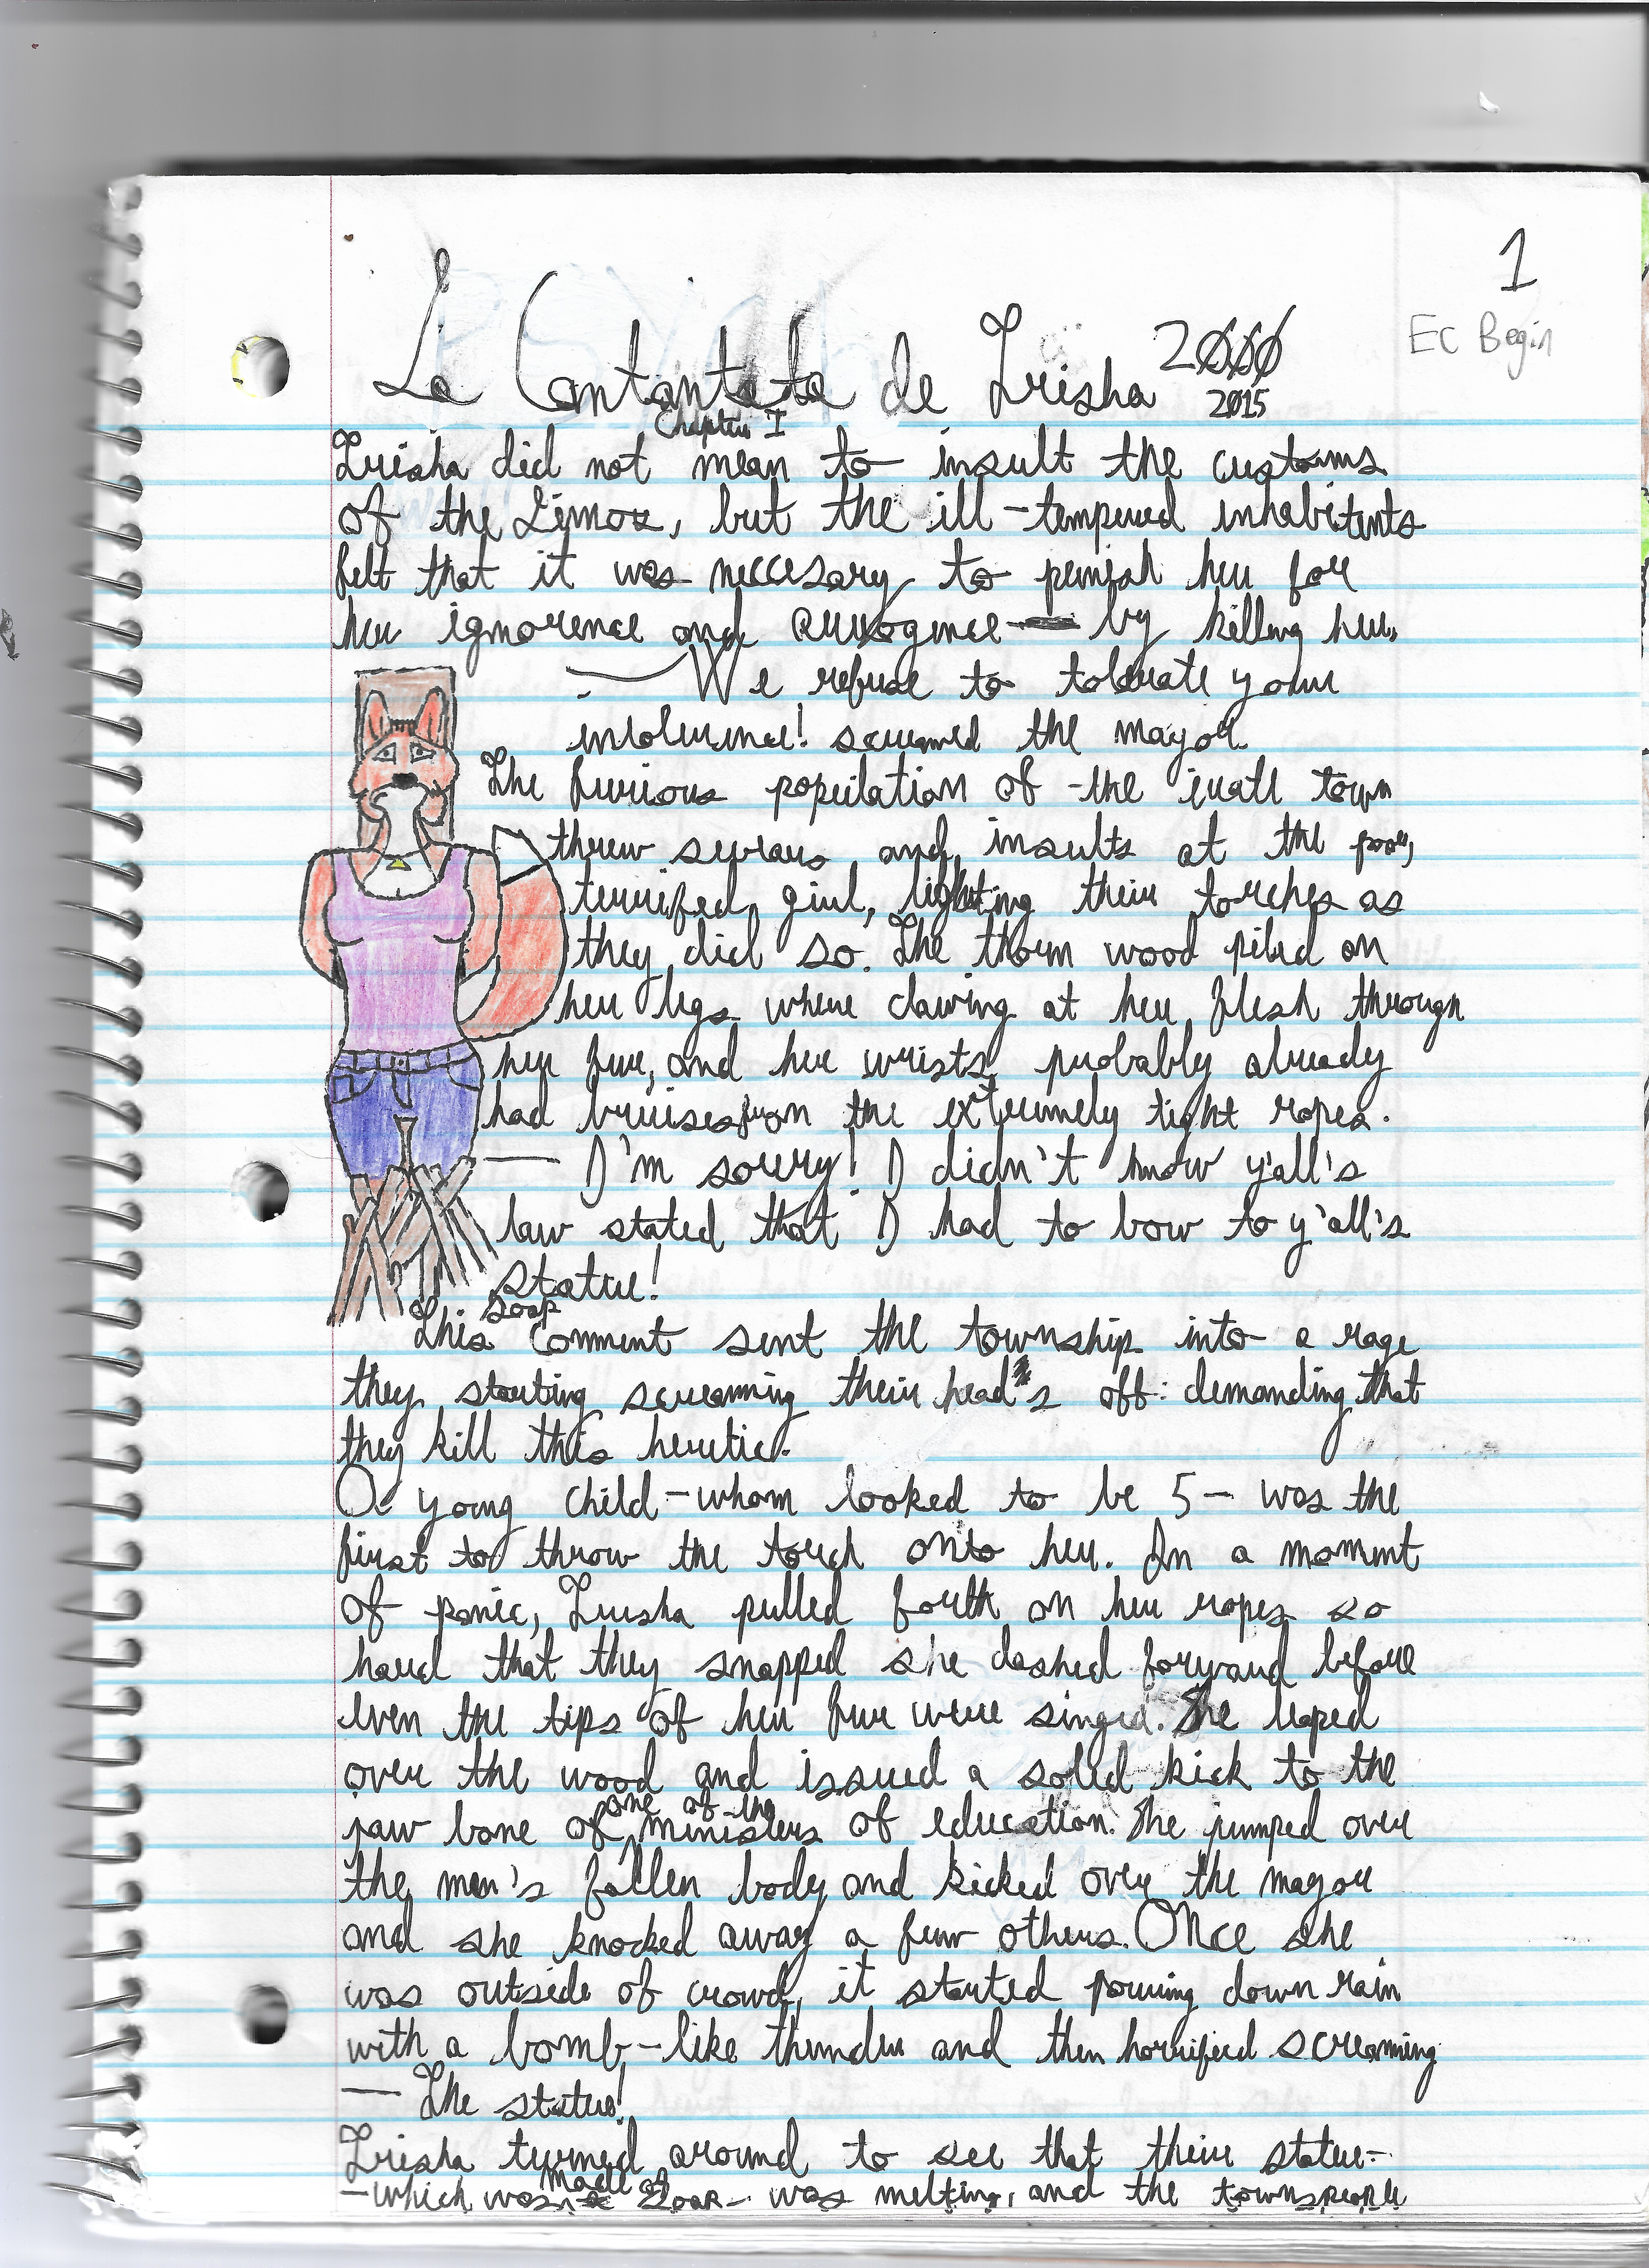 1
EC Begin
La Cantantata de Trisha 2000
2015
Chapter I
Trisha did not mean to insult the customs
of the Limox, but the ill-tempered inhabitents
felt that it was neccesary to punish her for
her ignorence and arrogence by killing her.
— We refuse to tolerate your
intolerence! screamed the mayor.
The furious population of the small town
threw screams and insults at the poor,
terrified girl, lighting their torches as
they did so. The thorn wood piled on
her legs where clawing at her flesh through
her fur, and her wrists probably already
had bruises from the extremely tight ropes.
— I'm sorry! I didn't know y'all's
law stated that I had to bow to y'all's
soap
statue!
This comment sent the township into a rage
they starting screaming their head's off: demanding that
they kill this heretic.
A young child-whom looked to be 5- was the
first to throw the torch onto her. In a moment
of panic, Trisha pulled forth on her ropes so
hard that they snapped she dashed forward before
even the tips of her fur were singed. She leaped
over the wood and issued a solid kick to the
jaw bone of one of the ministers of education. She jumped over
the men's fallen body and kicked over the mayor
and she knocked away a few others. Once she
was outside of crowd, it started pouring down rain
with a bomb-like thunder and then horrified screaming
— The statue!
Trisha turned around to see that their statue-
-which was made of soap- was melting, and the townspeople